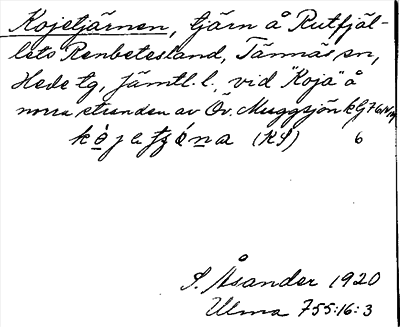 Kojetjärnen, tjärn å Rutfjäl-
lets Renbetesland, Tännäs sn,
Hede tg, Jämtl. l., vid "Koja" å
norra stranden av Öv. Muggsjön
(KS) 6
S. Åsander 1920
Ulma 755:16:3